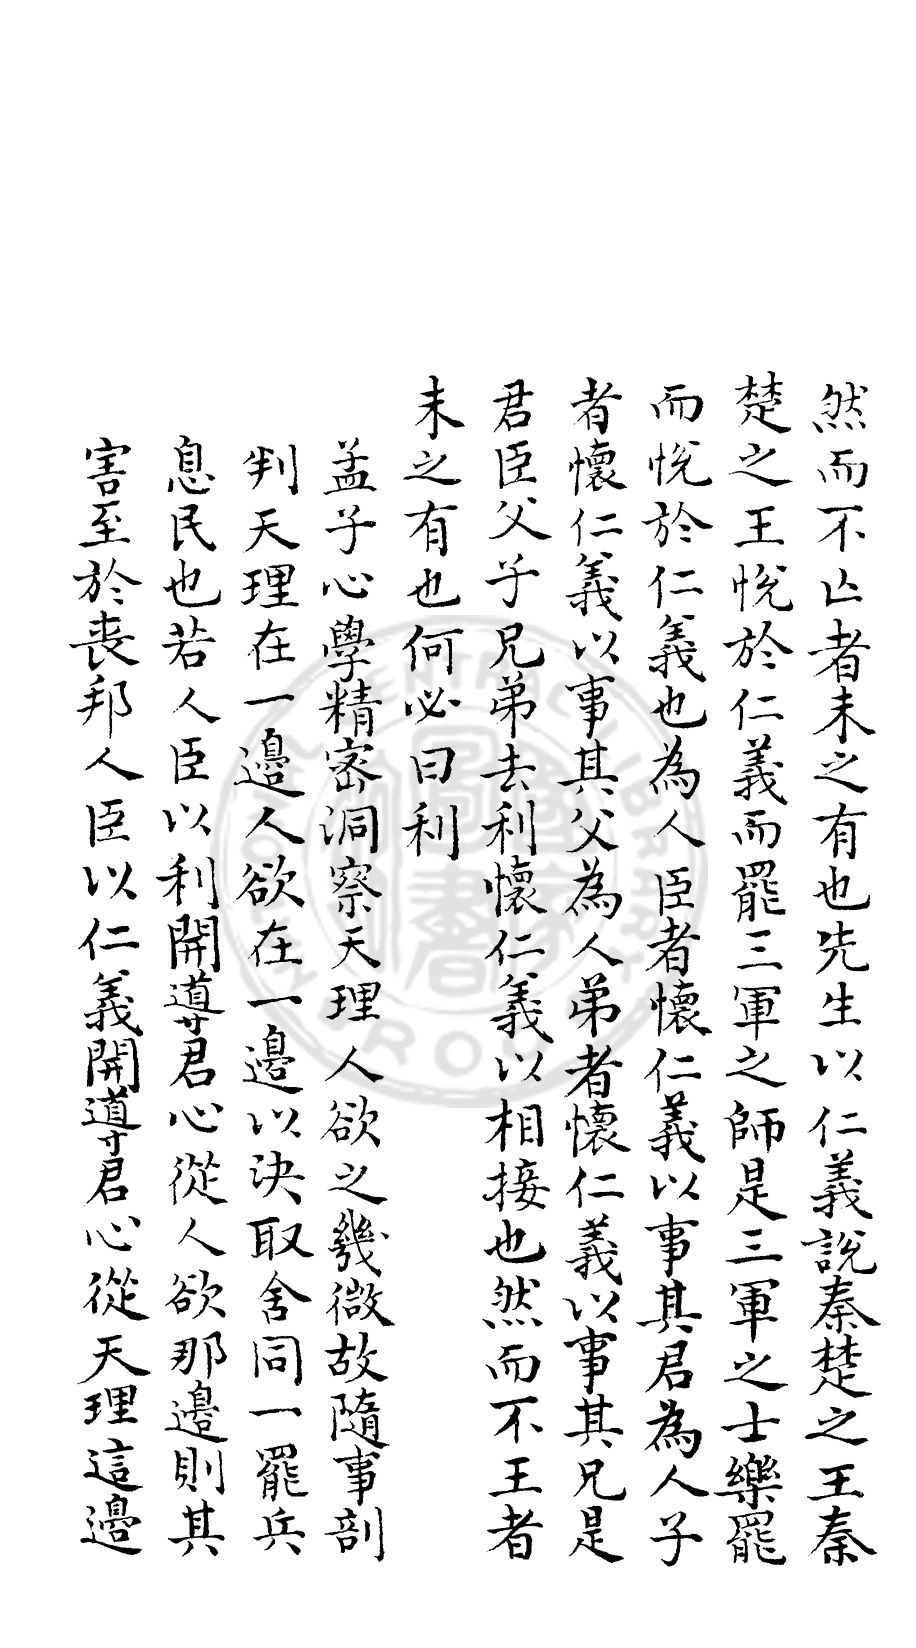 然而不亡者未之有也先生以仁義說秦楚之王秦
楚之王悅於仁義而罷三軍之師是三軍之士樂罷
而悅於仁義也為人臣者懷仁義以事其君為人子
者懷仁義以事其父為人弟者懷仁義以事其兄是
君臣父子兄弟去利懷仁義以相接也然而不王者
未之有也何必曰利
孟子心學精密洞察天理人欲之幾微故隨事剖
判天理在一邊人欲在一邊以決取舍同一罷兵
息民也若人臣以利開導君心從人欲那邊則其
害至於喪邦人臣以仁義開導君心從天理這邊